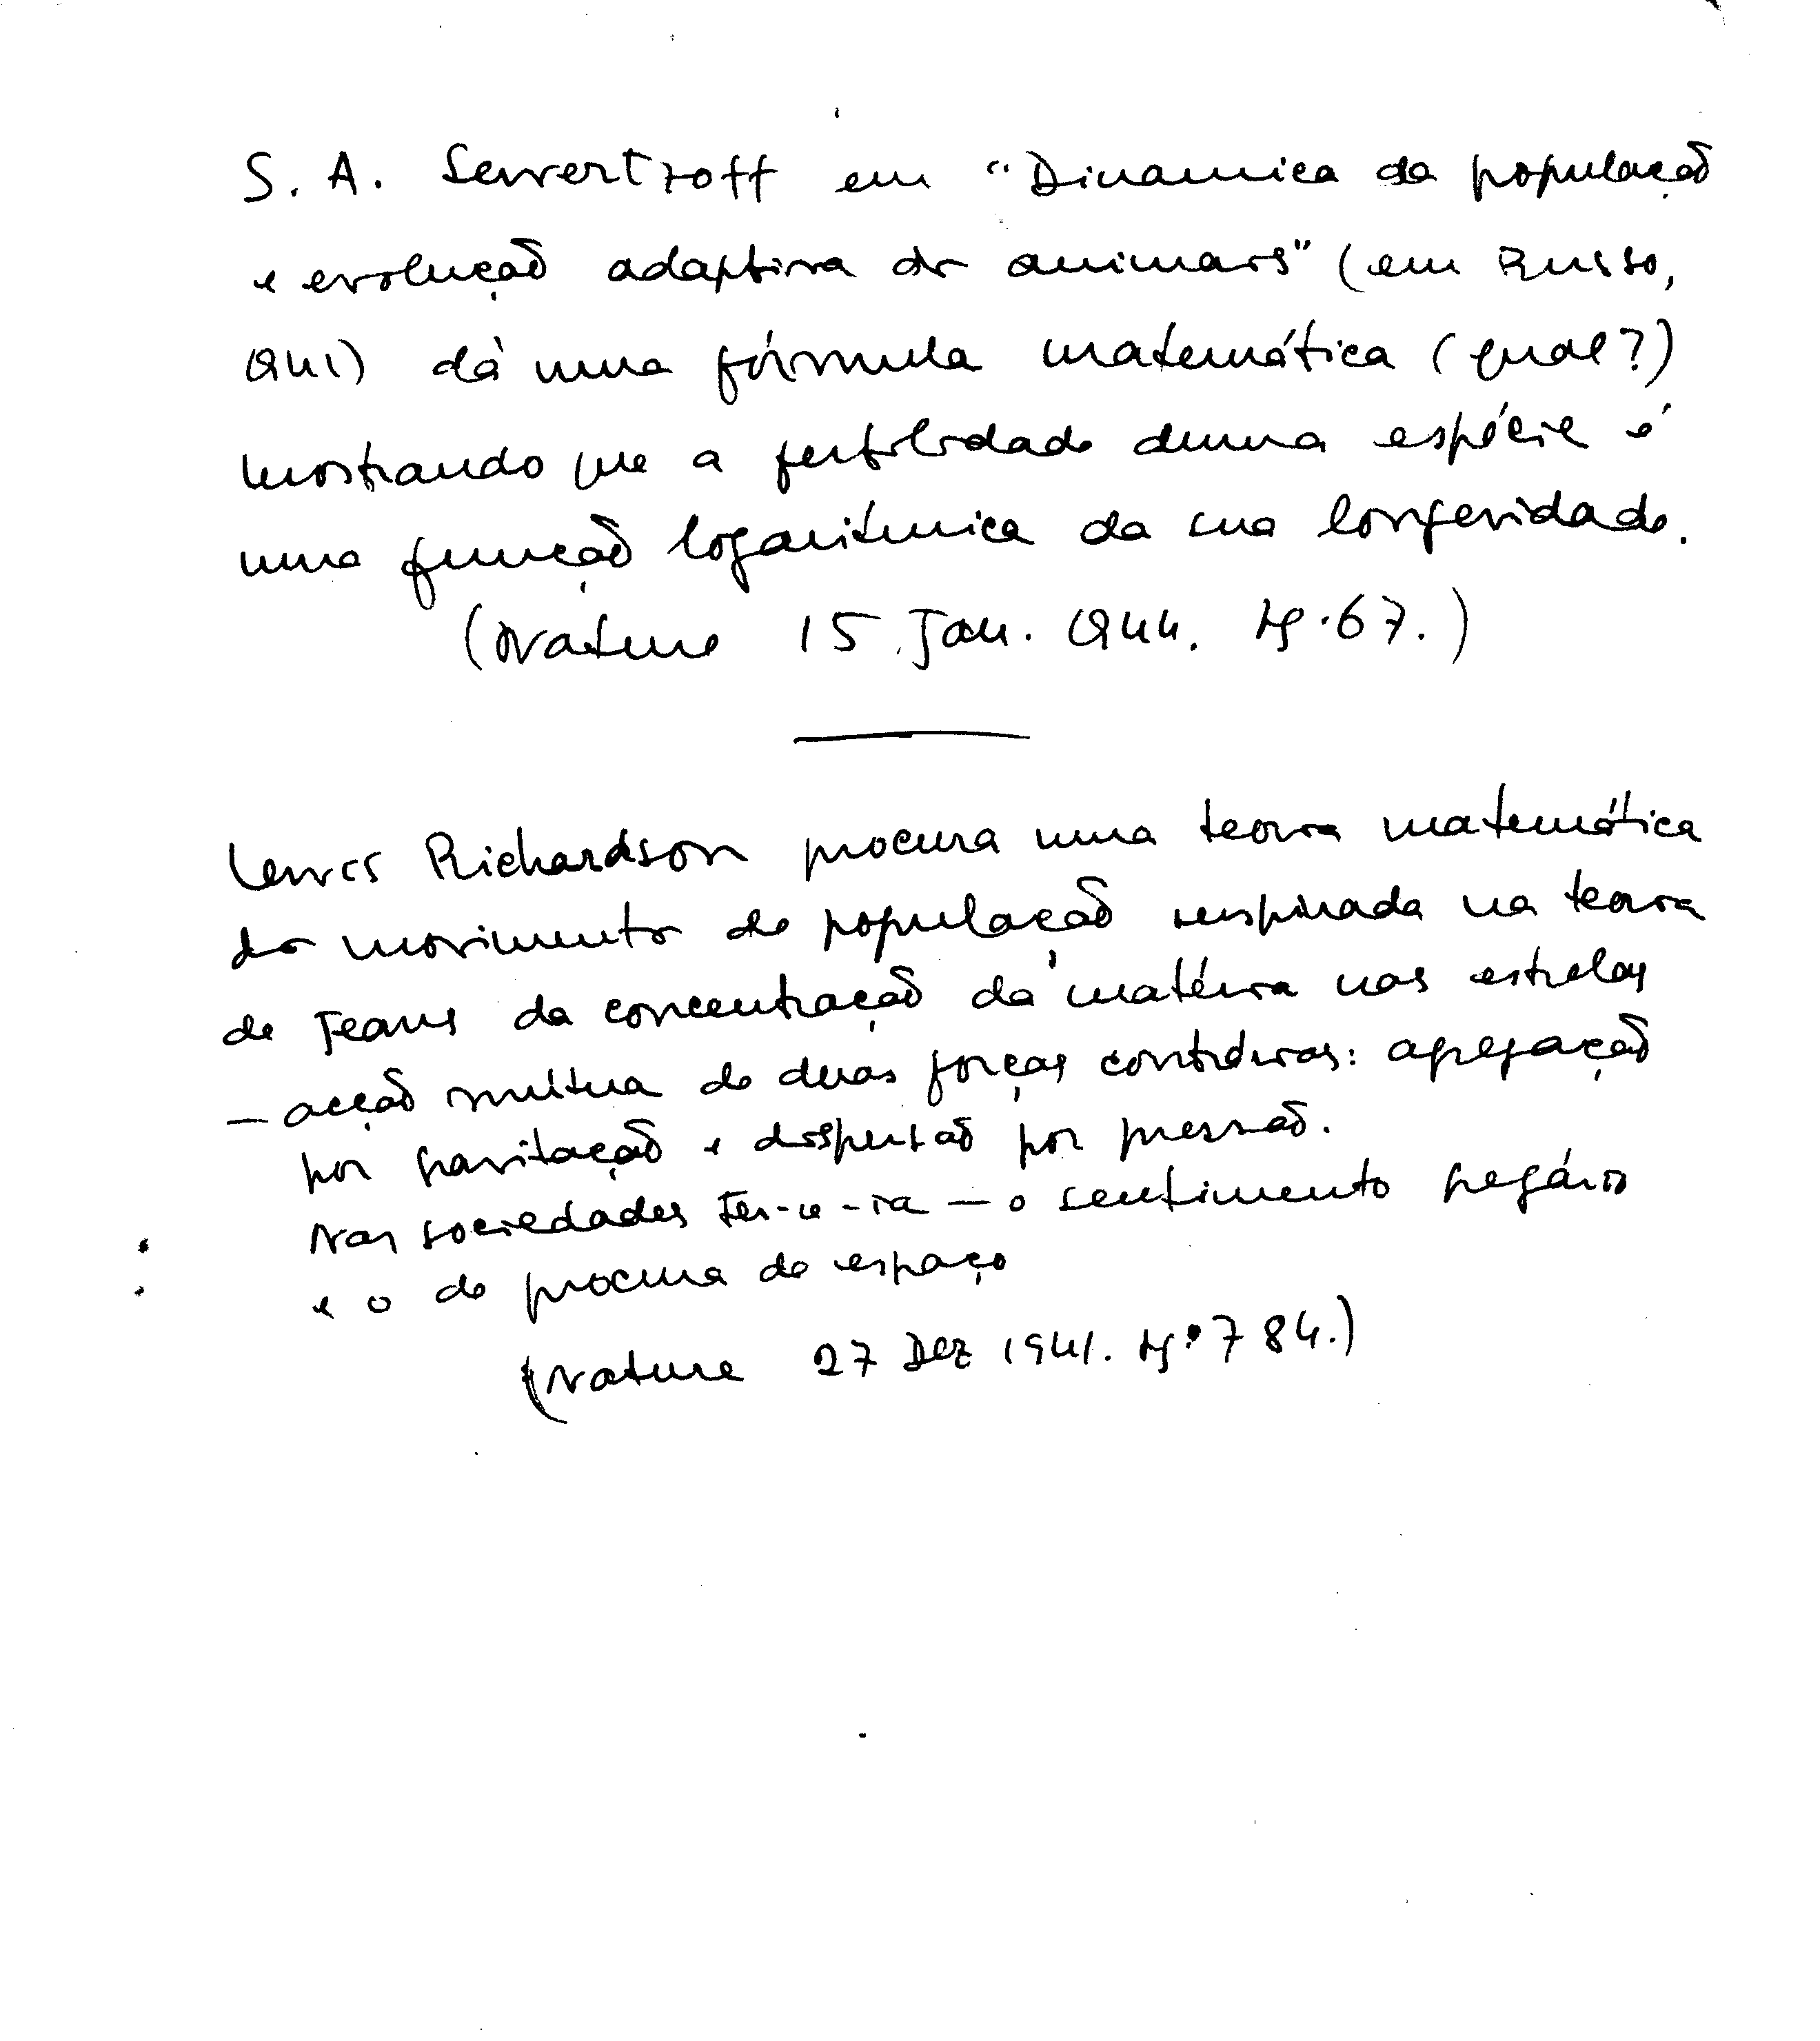 S. A. Sewertzoff em "Dinamica da população
e evolução adaptiva dos animais" (em Russo,
1941) dá uma fórmula matemática (qual?)
mostrando que a fertilidade duma espécie é
uma função logaritmica da sua longevidade.
(Nature 15 Jan. 1944. Pg. 67.)
Lewis Richardson procura uma teoria matemática
do movimento de população inspirada na teoria
de Jeans da concentração da matéria nas estrelas
- acção mútua de duas forças contrárias: agregação
por gravitação e dispersão por pressão.
Nas sociedades ter-se-ia - o sentimento gregário
e o de procura de espaço
(Nature 27 Dez 1941. Pg. 784.)